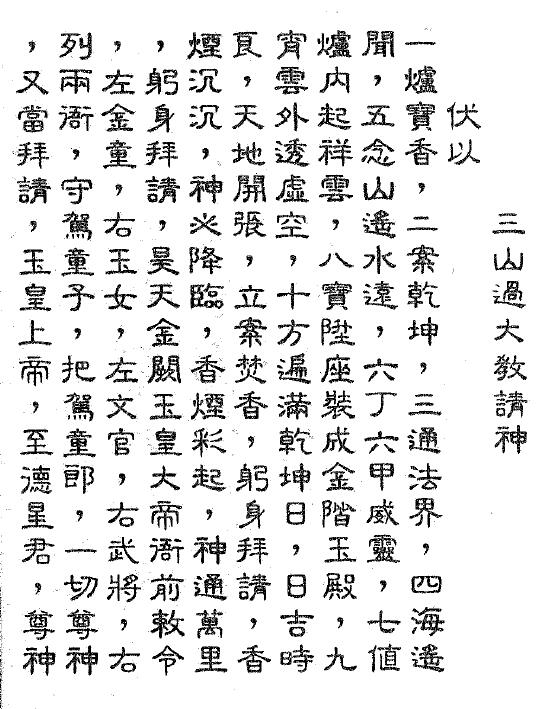 三山過大教請神
伏以
一爐寶香，二案乾坤，三通法界，四海遙
聞，五念山遙水遠，六丁六甲威靈，七值
爐內起祥雲，八寶陞座裝成金階玉殿，九
宵雲外透虛空，十方遍滿乾坤日，日吉時
良，天地開張，立案焚香，躬身拜請，香
煙沉沉，神必降臨，香煙彩起，神通萬里
，躬身拜請，昊天金闕玉皇大帝衙前敕令
，左金童，右玉女，左文官，右武將，右
列兩衙，守駕童子，把駕童郎，一切尊神
，又當拜請，玉皇上帝，至德星君，尊神